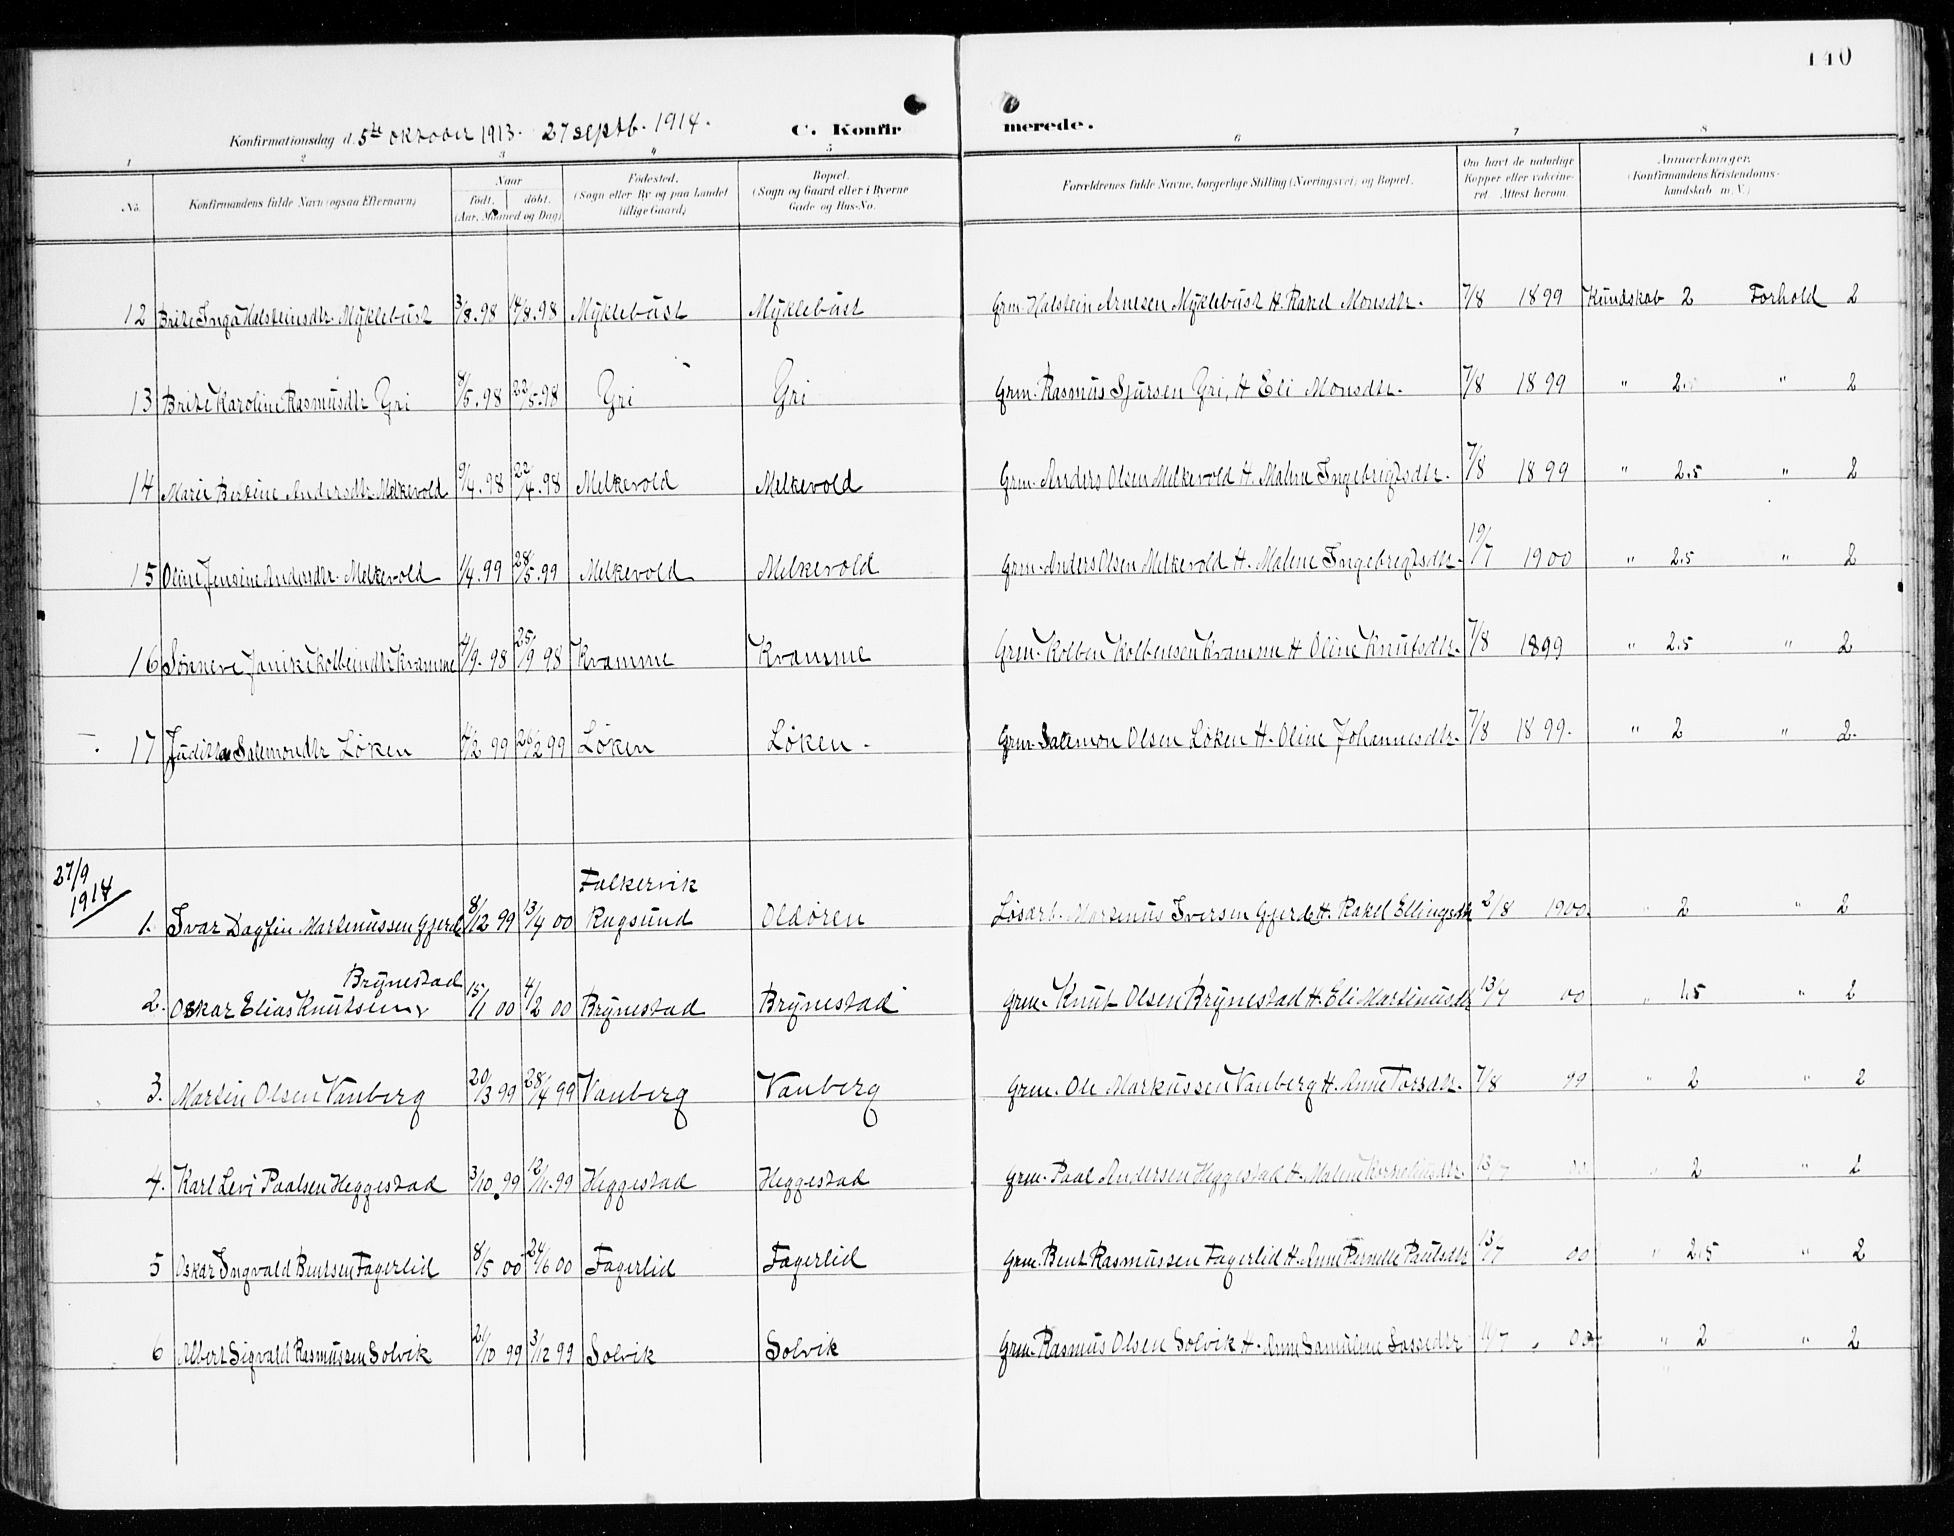 140
Konfirmationsdag d. 5te oktober 1913. 27 septb. 1914. C. Konfirmerede.
1 2 3 4 5 6 7 8
No. Konfirmandens fulde Navn (ogsaa Efternavn) Naar født. døbt. (Aar, Maaned og Dag) Fødested. (Sogn eller By og paa Landet tillige Gaard) Bopæl. (Sogn og Gaard eller i Byerne Gade og Hus-No. Forældrenes fulde Navne, borgerlige Stilling (Næringsvei) og Bopæl. Om havt de naturlige Kopper eller vakcineret. Attest herom. Anmærkninger. (Konfirmandens Kristendomskundskab m. V.)
12 Brite Inga Halsteinsdtr. Myklebust 3/8.98 14/8.98 Myklebust Myklebust Grm. Halstein Arnesen Myklebust H. Rakel Monsdtr. 7/8 1899 Kundskab 2 Forhold 2
13 Brite Karoline Rasmusdtr Gri 8/5.98 22/5.98 Gri Gri Grm. Rasmus Sjursen Gri, H Eli Monsdtr. 7/8 1899 " 2. " 2
14 Marie Bertine Andersdtr. Melkevold 9/4.98 22/4.98 Melkevold Melkevold Grm. Anders Olsen Melkevold H. Malene Ingebrigtsdtr. 7/8 1899 " 2.5 " 2
15 Oline Jensine Andersdtr. Melkevold 1/4.99 28/5.99 Melkevold Melkevold Grm. Anders Olsen Melkevold H. Malene Ingebregtsdtr. 19/7 1900 " 2.5 " 2
16 Sønneve Janike Kolbeindtr Kvamme 4/9.98 25/9 98 Kvamme Kvamme Grm. Kolben Kolbensen Kvamme H Oline Knutsdtr. 7/8 1899 " 2.5 " 2
17 Juditta Salemondtr Løken 7/2 99 26/2 99 Løken Løken. Grm. Salemon Olsen Løken H. Oline Johannesdtr. 7/8 1899. " 2 " 2.
27/9 1914
Falkervik
1. Ivar Dagfin Martinussen Gjerde 8/12 99 13/4 00 Rugsund Oldøren Løsarb. Martinus Iversen Gjerde H. Rakel Ellingsdtr 2/8 1900. " 2 " 2
Brynestad
2. Oskar Elias Knutsen 15/1 00 4/2 00 Brynestad Brynestad Grm. Knut Olsen Brynestad H. Eli Martinusdtr 13/7 00 " 1.5 " 2
3. Martin Olsen Vanberg 20/3 99 28/4 99 Vanberg Vanberg Grm. Ole Markussen Vanberg H. Anne Torsdtr. 7/8 99 " 2 " 2
4. Karl Levi Paalsen Heggestad 3/10.99 12/11.99 Heggestad Heggestad Grm. Paal Andersen Heggestad H. Malene 13/7 00 " 2 " 2
5 Oskar Ingvald Bentsen Fagerlid 8/5 00 24/6 00 Fagerlid Fagerlid Grm. Bent Rasmussen Fagerlid H. Anne Pernelle Paulsdtr 13/7 00 " 2.5 " 2
6 Albert Sigvald Rasmussen Solvik 21/10 99 3/12 99 Solvik Solvik Grm. Rasmus Olsen Solvik H. Anne 11/7 " 00 " 2 " 2